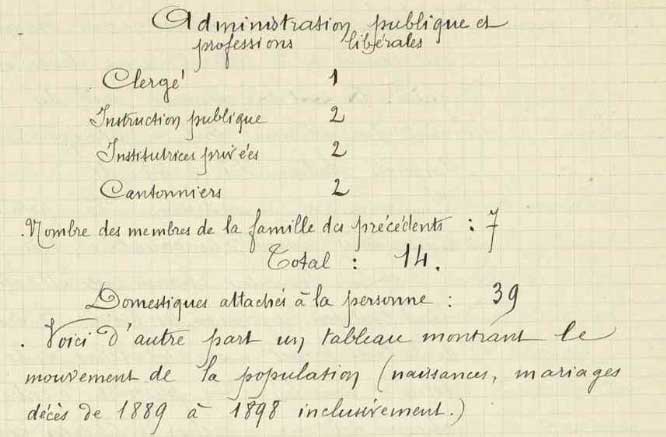 Administration publique et
professions libérales
Clergé 1
Instruction publique 2
Institutrices privées 2
Cantonniers 2
. Nombre des membres de la famille des précédents : 7
Total : 14.
Domestiques attachés à la personne : 39
. Voici d'autre part un tableau montrant le
mouvement de la population (naissances, mariages
décès de 1889 à 1898 inclusivement.)